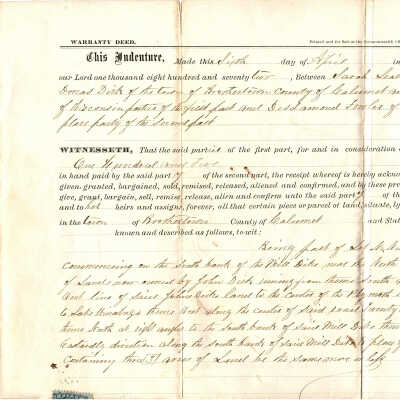 WARRANTY DEED.
Printed and for Sale at the Commonwealth
This Indenture, Made this Sixth day of April in
our Lord one thousand eight hundred and seventy two, Between Sarah
Dorcas Dick of the town of Brothertown County of Calumet
of Wisconsin parties of the first part and Desdamond
place party of the second part
WITNESSETH, That the said parties of the first part, for and in consideration
One Hundred and five
in hand paid by the said party of the second part, the receipt whereof is hereby
given, granted, bargained, sold, remised, released, aliened and confirmed, and by these
give, grant, bargain, sell, remise, release, alien and confirm unto the said party of the
and to her heirs and assigns, forever, all that certain piece or parcel of land, situate, ly
in the town of Brothertown County of Calumet and Stat
known and described as follows, to-wit:
Being part of Lot
commencing on the south bank of the Mill Dike, near the North
of Lands now owned by John Dick, running from thence South
West line of said John Dicks Land to the centre of the
to Lake Winnebago thence West along the centre of said road
thence North at right angles to the South bank of said Mill Dike then
Easterly direction along the South bank of said Mill Dike to place
Containing three acres of Land be the same more or less